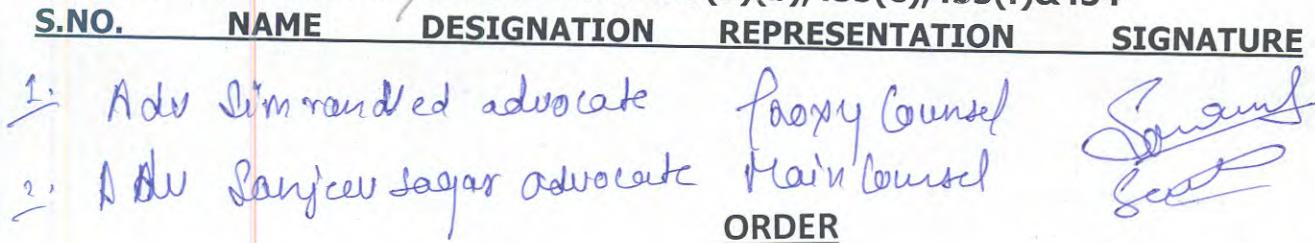 (e)/433(f)&434
S.NO. NAME DESIGNATION REPRESENTATION SIGNATURE
1. Adv advocate Proxy Counsel
2. Adv Sanjeev Sagar advocate Main Counsel
ORDER